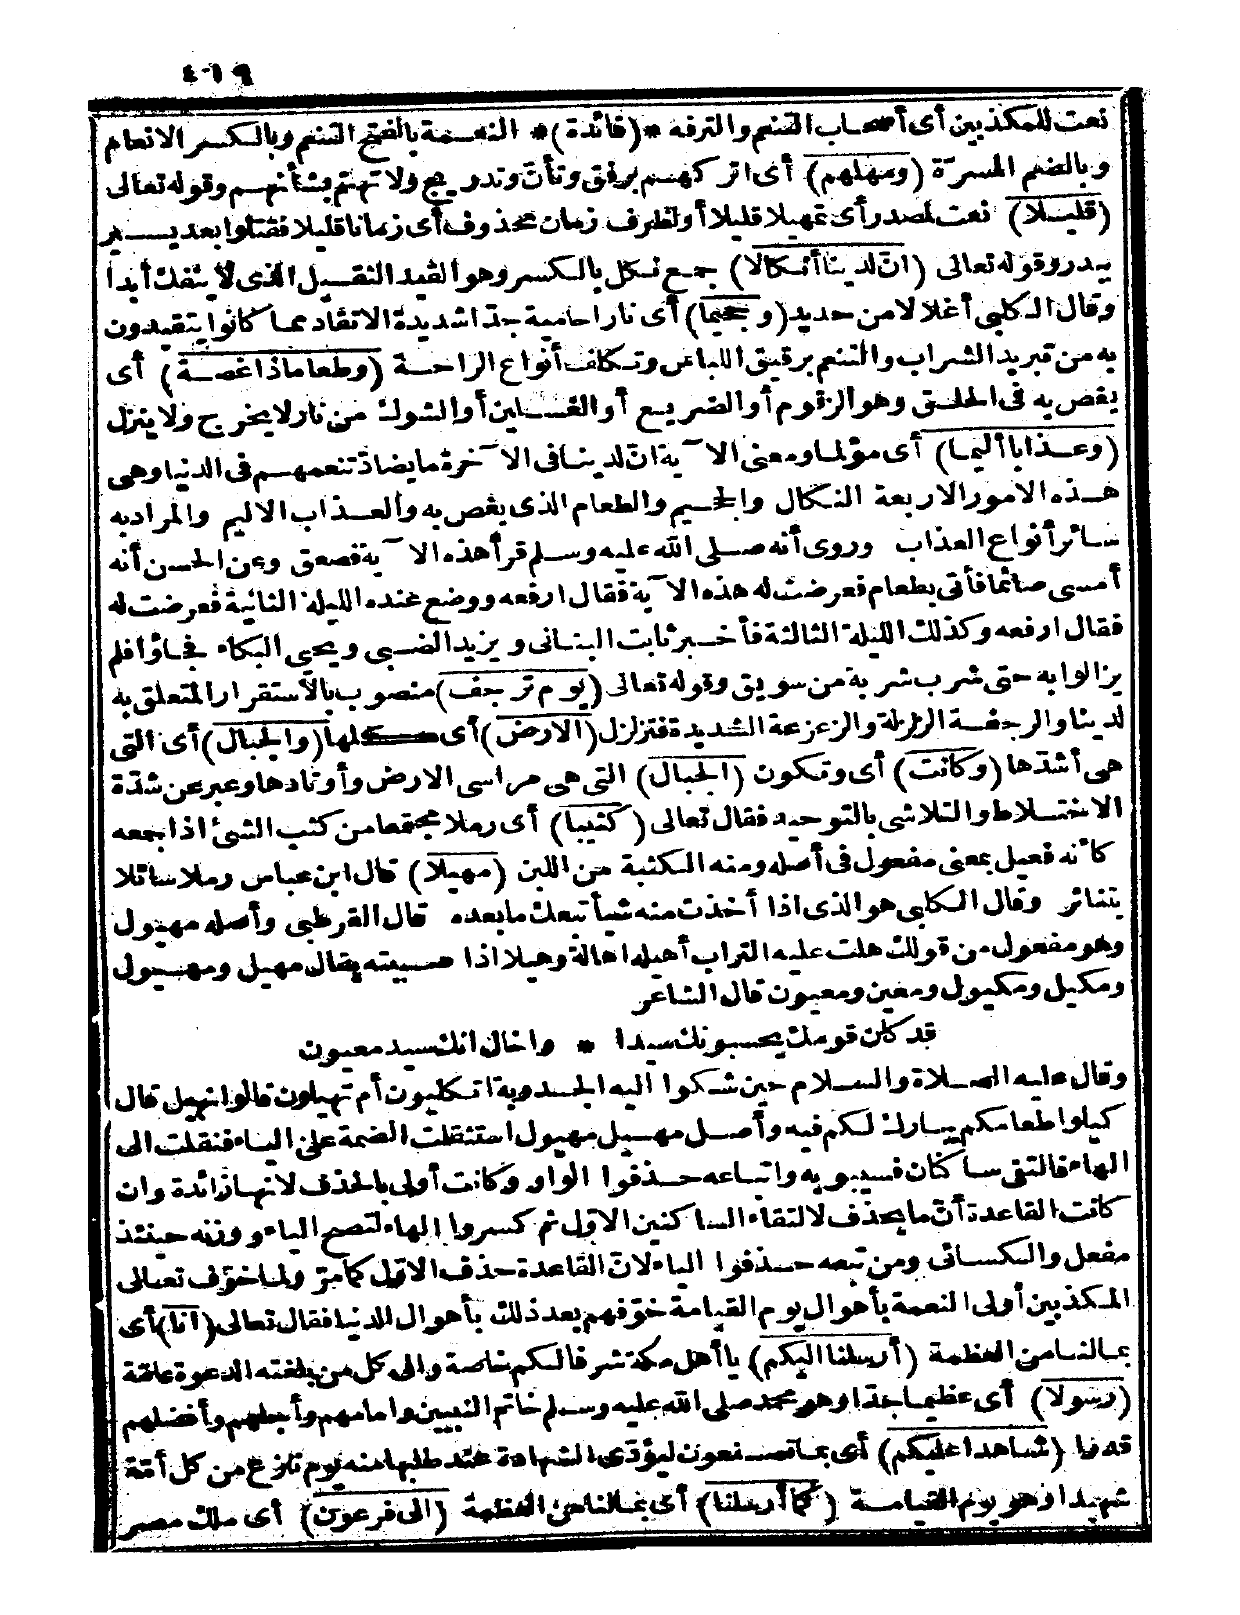 ٤١٩
نعت للمكذبين أى أصحاب التنعم والترفه *(فائدة)* النعمة بالفتح التنعم وبالكسر الانعام
وبالضم المسرّة (ومهلهم) أى اتركهم برفق وتأنّ وتدريج ولا تهتمّ بشأنهم وقوله تعالى
(قليلا) نعت لمصدر أى تمهيلا قليلا أو لظرف زمان محذوف أى زمانا قليلا فقتلوا بعد يسير
ببدر وقوله تعالى (انّ لدينا أنكالا) جمع نكل بالكسر وهو القيد الثقيل الذى لا ينفك أبدا
وقال الكلبى أغلالا من حديد (وجحيما) أى نارا حامية جدّا شديدة الاتقاد مما كانوا يتقيدون
به من تبريد الشراب والتنعم برقيق اللباس وتكلف أنواع الراحة (وطعاما ذا غصة) أى
يغص به فى الحلق وهو الزقوم أو الضريع أو الغسلين أو الشوك من نار لا يخرج ولا ينزل
(وعذابا أليما) أى مؤلما ومعنى الآية انّ لدينا فى الآخرة ما يضادّ تنعمهم فى الدنيا وهى
هذه الامور الاربعة النكال والجحيم والطعام الذى يغص به والعذاب الاليم والمراد به
سائر أنواع العذاب وروى أنه صلى الله عليه وسلم قرأ هذه الآية فصعق وعن الحسن أنه
أمسى صائما فأتى بطعام فعرضت له هذه الآية فقال ارفعه ووضع عنده الليلة الثانية فعرضت له
فقال ارفعه وكذلك الليلة الثالثة فأخبر ثابت البنانى ويزيد الضبى ويحيى البكاء فجاؤا فلم
يزالوا به حتى شرب شربة من سويق وقوله تعالى (يوم ترجف) منصوب بالاستقرار المتعلق به
لدينا والرجفة الزلزلة والزعزعة الشديدة فتزلزل (الارض) أى كلها (والجبال) أى التى
هى أشدّها (وكانت) أى وتكون (الجبال) التى هى مراسى الارض وأوتادها وعبر عن شدّة
الاختلاط والتلاشى بالتوحيد فقال تعالى (كثيبا) أى رملا مجتمعا من كثب الشئ اذا جمعه
كأنه فعيل بمعنى مفعول فى أصله ومنه الكثبة من اللبن (مهيلا) قال ابن عباس رملا سائلا
يتناثر وقال الكلبى هو الذى اذا أخذت منه شيأ تبعك ما بعده قال القرطبى وأصله مهيول
وهو مفعول من قولك هلت عليه التراب أهيله اهالة وهيلا اذا صببته يقال مهيل ومهيول
ومكيل ومكيول ومعين ومعيون قال الشاعر
قد كان قومك يحسبونك سيدا * واخال انك سيد معيون
وقال عليه الصلاة والسلام حين شكوا اليه الجدوبة اتكيلون أم تهيلون قالوا نهيل قال
كيلوا طعامكم يبارك لكم فيه وأصل مهيل مهيول استثقلت الضمة على الياء فنقلت الى
الهاء فالتقى ساكنان فسيبويه واتباعه حذفوا الواو وكانت أولى بالحذف لانها زائدة وان
كانت القاعدة أنّ ما يحذف لالتقاء الساكنين الاوّل ثم كسروا الهاء لتصح الياء ووزنه حينئذ
مفعل والكسائى ومن تبعه حذفوا الياء لانّ القاعدة حذف الاوّل كما مرّ ولما خوّف تعالى
المكذبين أولى النعمة بأهوال يوم القيامة خوّفهم بعد ذلك بأهوال الدنيا فقال تعالى (انا) أى
بمالنا من العظمة (أرسلنا اليكم) يا أهل مكة شرفا لكم خاصة والى كل من بلغته الدعوة عامّة
(رسولا) أى عظيما جدّا وهو محمد صلى الله عليه وسلم خاتم النبيين وامامهم وأجلهم وأفضلهم
قدرا (شاهدا عليكم) أى بما تصنعون ليؤدّى الشهادة عند طلبها منه يوم تنزع من كل أمّة
شهيدا وهو يوم القيامة (كما أرسلنا) أى بمالنا من العظمة (الى فرعون) أى ملك مصر